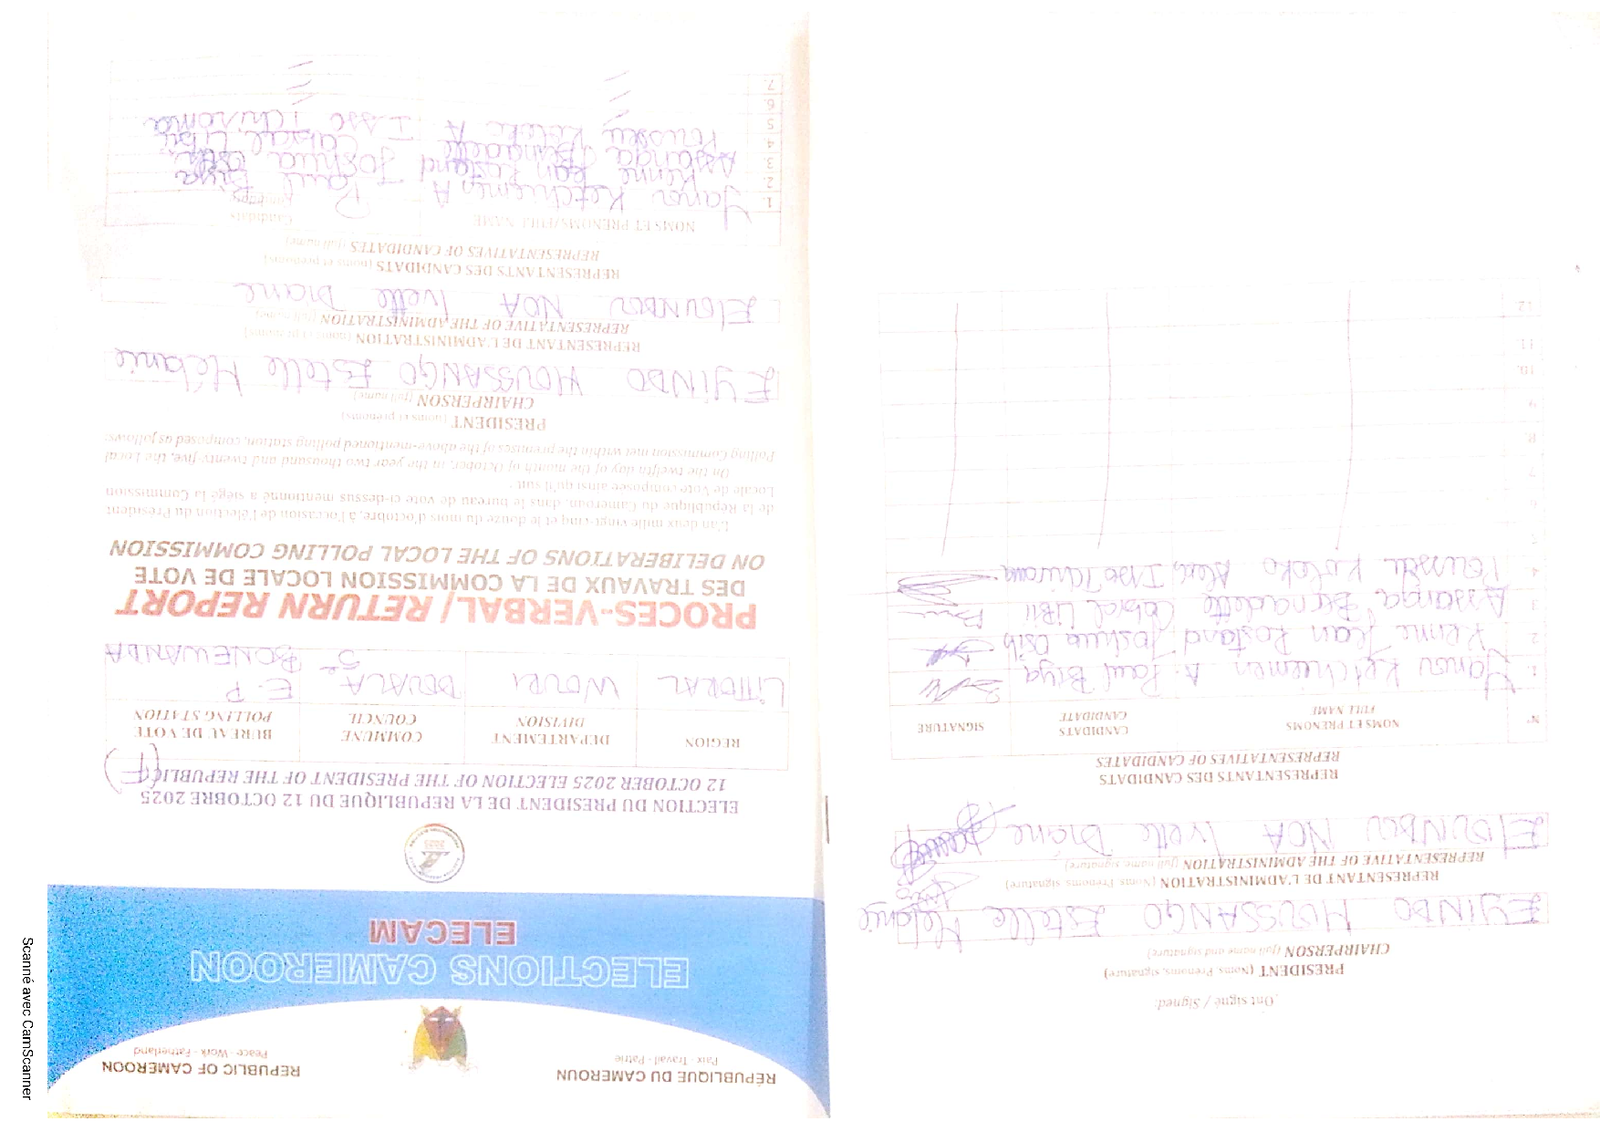 RÉPUBLIQUE DU CAMEROUN
Paix - Travail - Patrie
REPUBLIC OF CAMEROON
Peace - Work - Fatherland
ELECTIONS CAMEROON
ELECAM
ELECTION DU PRESIDENT DE LA REPUBLIQUE DU 12 OCTOBRE 2025
12 OCTOBER 2025 ELECTION OF THE PRESIDENT OF THE REPUBLIC (F)
REGION
DEPARTEMENT
DIVISION
COMMUNE
COUNCIL
BUREAU DE VOTE
POLLING STATION
LITTORAL
WOURI
DOUALA 5e
E.P BONEWANDA
PROCES-VERBAL / RETURN REPORT
DES TRAVAUX DE LA COMMISSION LOCALE DE VOTE
ON DELIBERATIONS OF THE LOCAL POLLING COMMISSION
L'an deux mille vingt-cinq et le douze du mois d'octobre, à l'occasion de l'élection du Président
de la République du Cameroun, dans le bureau de vote ci-dessus mentionné a siégé la Commission
Locale de Vote composée ainsi qu'il suit :
On the twelfth day of the month of October, in the year two thousand and twenty-five, the Local
Polling Commission met within the premises of the above-mentioned polling station, composed as follows:
PRESIDENT (noms et prénoms)
CHAIRPERSON (full name)
EYINDO MOUSSANGO Estelle Mélanie
REPRESENTANT DE L'ADMINISTRATION (noms et prénoms)
REPRESENTATIVE OF THE ADMINISTRATION (full name)
ELOUNDOU NOA Ivette Diane
REPRESENTANTS DES CANDIDATS (noms et prénoms)
REPRESENTATIVES OF CANDIDATES (full name)
NOMS ET PRENOMS/FULL NAME
Candidats
Candidates
1. Yamou Ketchiemen A Paul Biya
2. Kenne Jean Rostand Joshua Osih
3. Assanga Bernadette Cabral Libii
4. Poussu Koloko A Issa Tchiroma
5.
6.
7.
Ont signé / Signed:
PRESIDENT (Noms Prénoms, signature)
CHAIRPERSON (full name and signature)
EYINDO MOUSSANGO Estelle Mélanie
REPRESENTANT DE L'ADMINISTRATION (Noms, Prénoms signature)
REPRESENTATIVE OF THE ADMINISTRATION (full name signature)
ELOUNDOU NOA Ivette Diane
REPRESENTANTS DES CANDIDATS
REPRESENTATIVES OF CANDIDATES
N°
NOMS ET PRENOMS
FULL NAME
CANDIDATS
CANDIDATE
SIGNATURE
1 Yamou Ketchiemen A. Paul Biya
2 Kenne Jean Rostand Joshua Osih
3 Assanga Bernadette Cabral LIBII
4 Poussu Koloko Alex Issa Tchiroma
5
6
7
8
9
10.
11.
12.
Scanné avec CamScanner